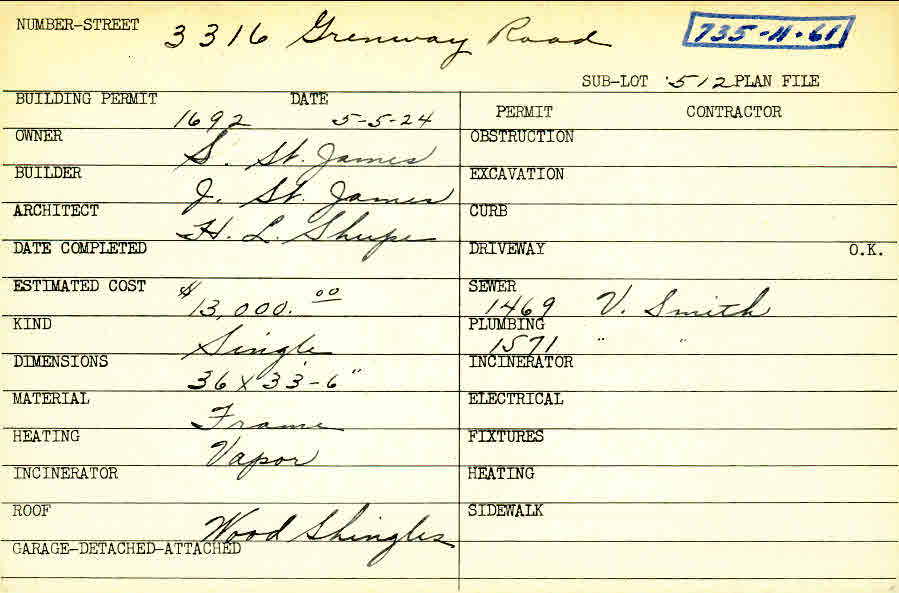 NUMBER-STREET 3316 Grenway Road 735-11-61
SUB-LOT 512 PLAN FILE
BUILDING PERMIT DATE
1692 5-5-24
PERMIT CONTRACTOR
OWNER
S. St. James
BUILDER
J. St. James
ARCHITECT
H. L. Shupe
DATE COMPLETED
ESTIMATED COST
$13,000.00
KIND
Single
DIMENSIONS
36 x 33'-6"
MATERIAL
Frame
HEATING
Vapor
INCINERATOR
ROOF
Wood Shingles
GARAGE-DETACHED-ATTACHED
OBSTRUCTION
EXCAVATION
CURB
DRIVEWAY O.K.
SEWER
1469 V. Smith
PLUMBING
1571 " "
INCINERATOR
ELECTRICAL
FIXTURES
HEATING
SIDEWALK